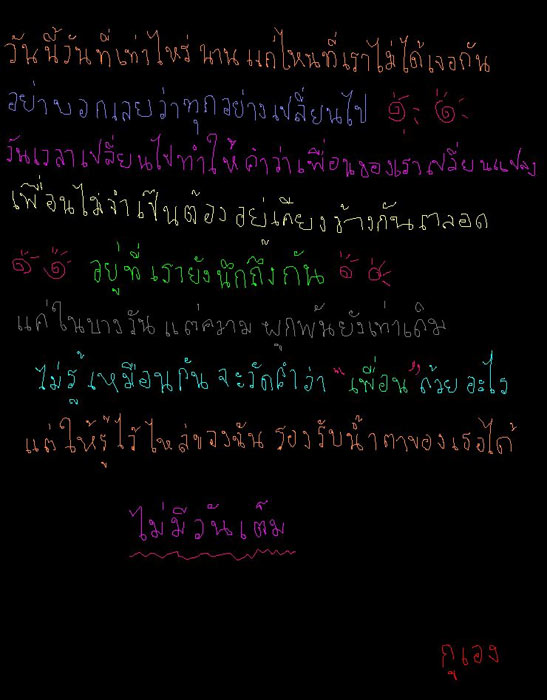 วันนี้วันที่เท่าไหร่ นานแค่ไหนที่เราไม่ได้เจอกัน
อย่าบอกเลยว่าทุกอย่างเปลี่ยนไป
วันเวลาเปลี่ยนไปทำให้คำว่าเพื่อนของเราเปลี่ยนแปลง
เพื่อนไม่จำเป็นต้องอยู่เคียงข้างกันตลอด
อยู่ที่เรายังนึกถึงกัน
แค่ในบางวัน แต่ความผูกพันยังเท่าเดิม
ไม่รู้เหมือนกัน จะวัดคำว่า "เพื่อน" ด้วยอะไร
แต่ให้รู้ไว้ไหล่ของฉัน รองรับน้ำตาของเธอได้
ไม่มีวันเต็ม
กูเอง